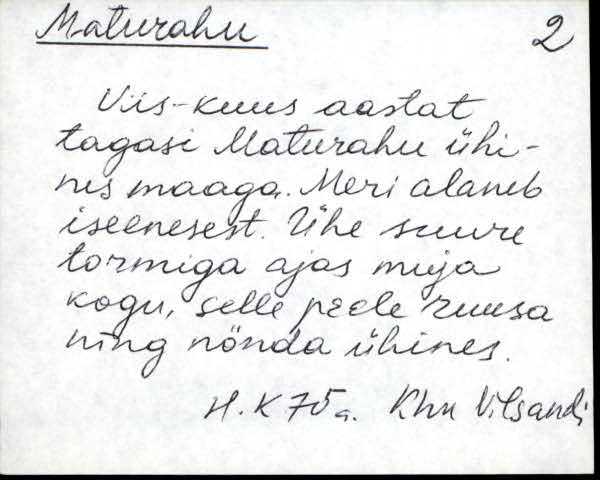 Maturahu 2
Viis-kuus aastat
tagasi Maturahu ühi-
nes maaga. Meri alaneb
iseenesest. Ühe suure
tormiga ajas muja
kogu, selle peele ruusa
ning nõnda ühines.
H. K 75 a. Khn Vilsandi